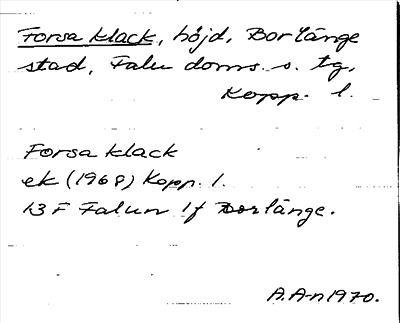 Forsa klack, höjd, Borlänge
stad, Falu doms. s. tg,
Kopp. l.
Forsa klack
ek (1968) Kopp. l.
13 F Falun 1f Borlänge.
A.A-n 1970.